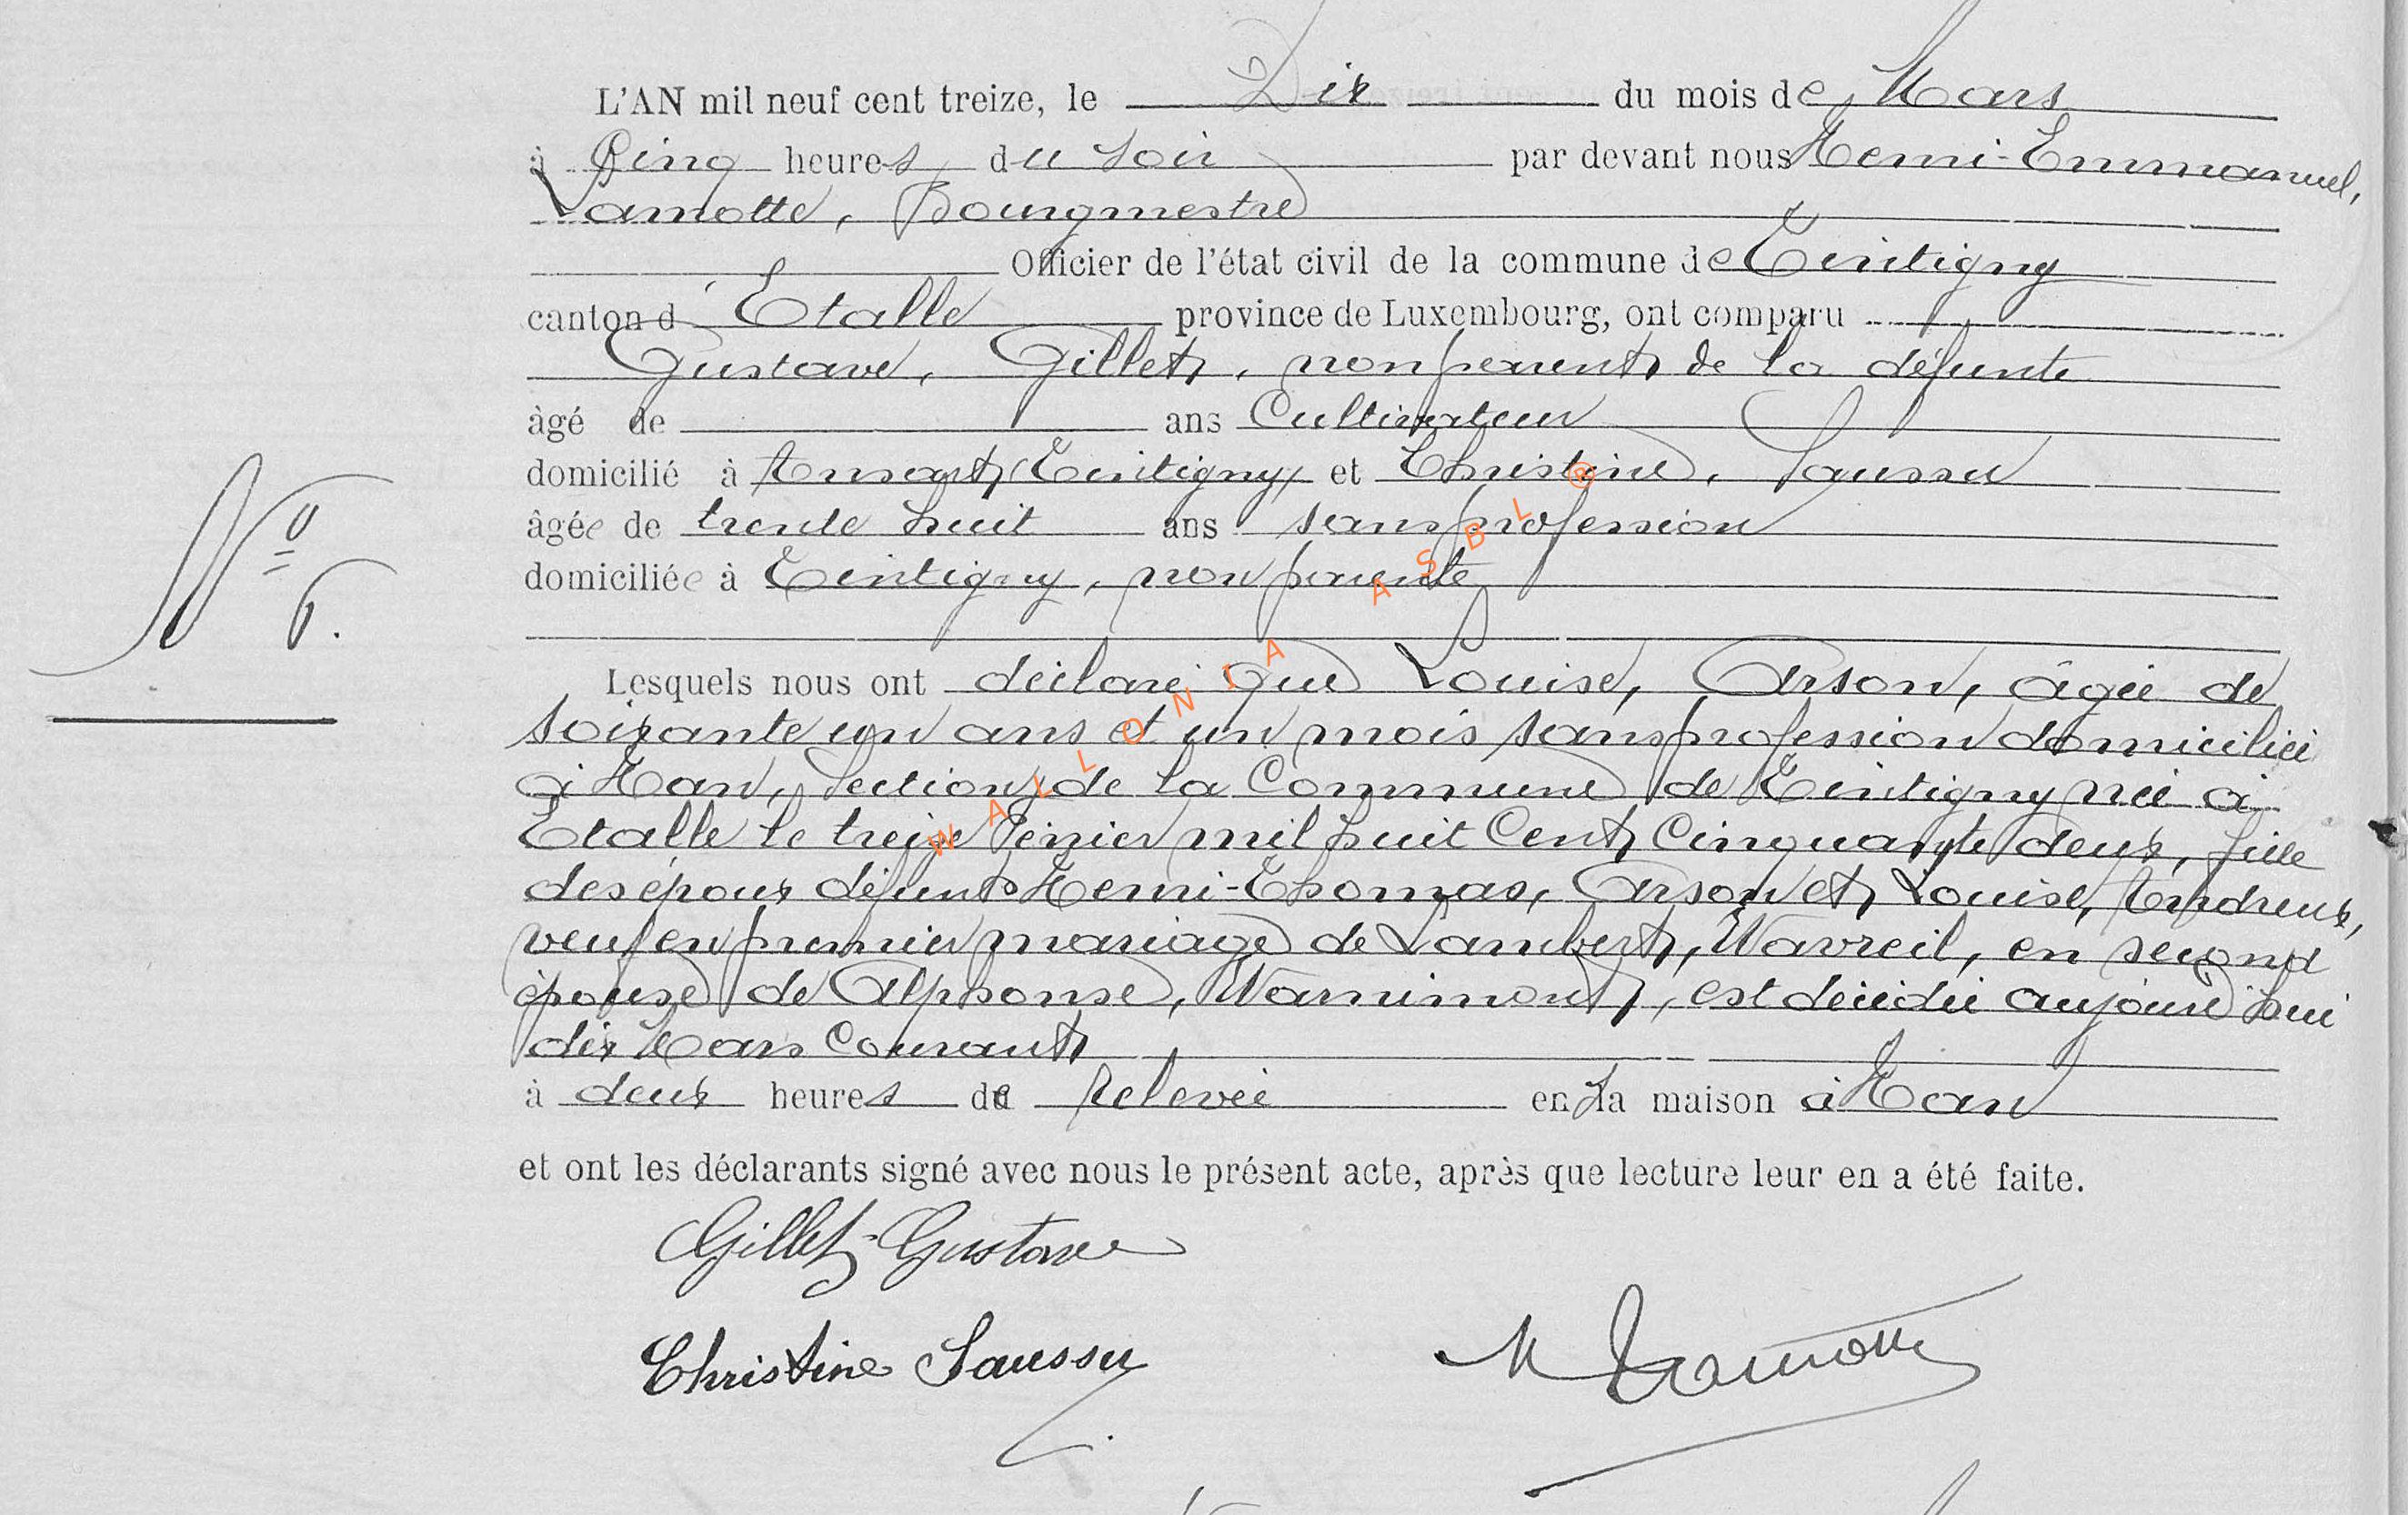 L'AN mil neuf cent treize, le Dix du mois de Mars
à Cinq heures du Soir par devant nous Henri-Emmanuel,
Lamotte, Bourgmestre
Officier de l'état civil de la commune de Tintigny
canton d'Etalle province de Luxembourg, ont comparu
Gustave, Gillet, non parent de la défunte
âgé de ans Cultivateur
domicilié à Ansart (Tintigny) et Christine, Saussu
âgée de trente huit ans sans profession
domiciliée à Tintigny, non parente
Nº 6.
Lesquels nous ont déclaré que Louise, Arson, âgée de
soixante un ans et un mois sans profession domiciliée
à Han, section de la Commune de Tintigny née à
Etalle le treize février mil huit Cent Cinquante deux, fille
des époux défunts Henri-Thomas, Arson et Louise, Andreux,
veuf en premier mariage de Lambert, Wavreil, en second
épouse de Alphonse, Warnimont, est décédée aujourd'hui
dix Mars Courant
à deux heures de relevée en sa maison à Han
et ont les déclarants signé avec nous le présent acte, après que lecture leur en a été faite.
Gillet-Gustave
Christine Saussu
H Lamotte
WALLONIA ASBL ®